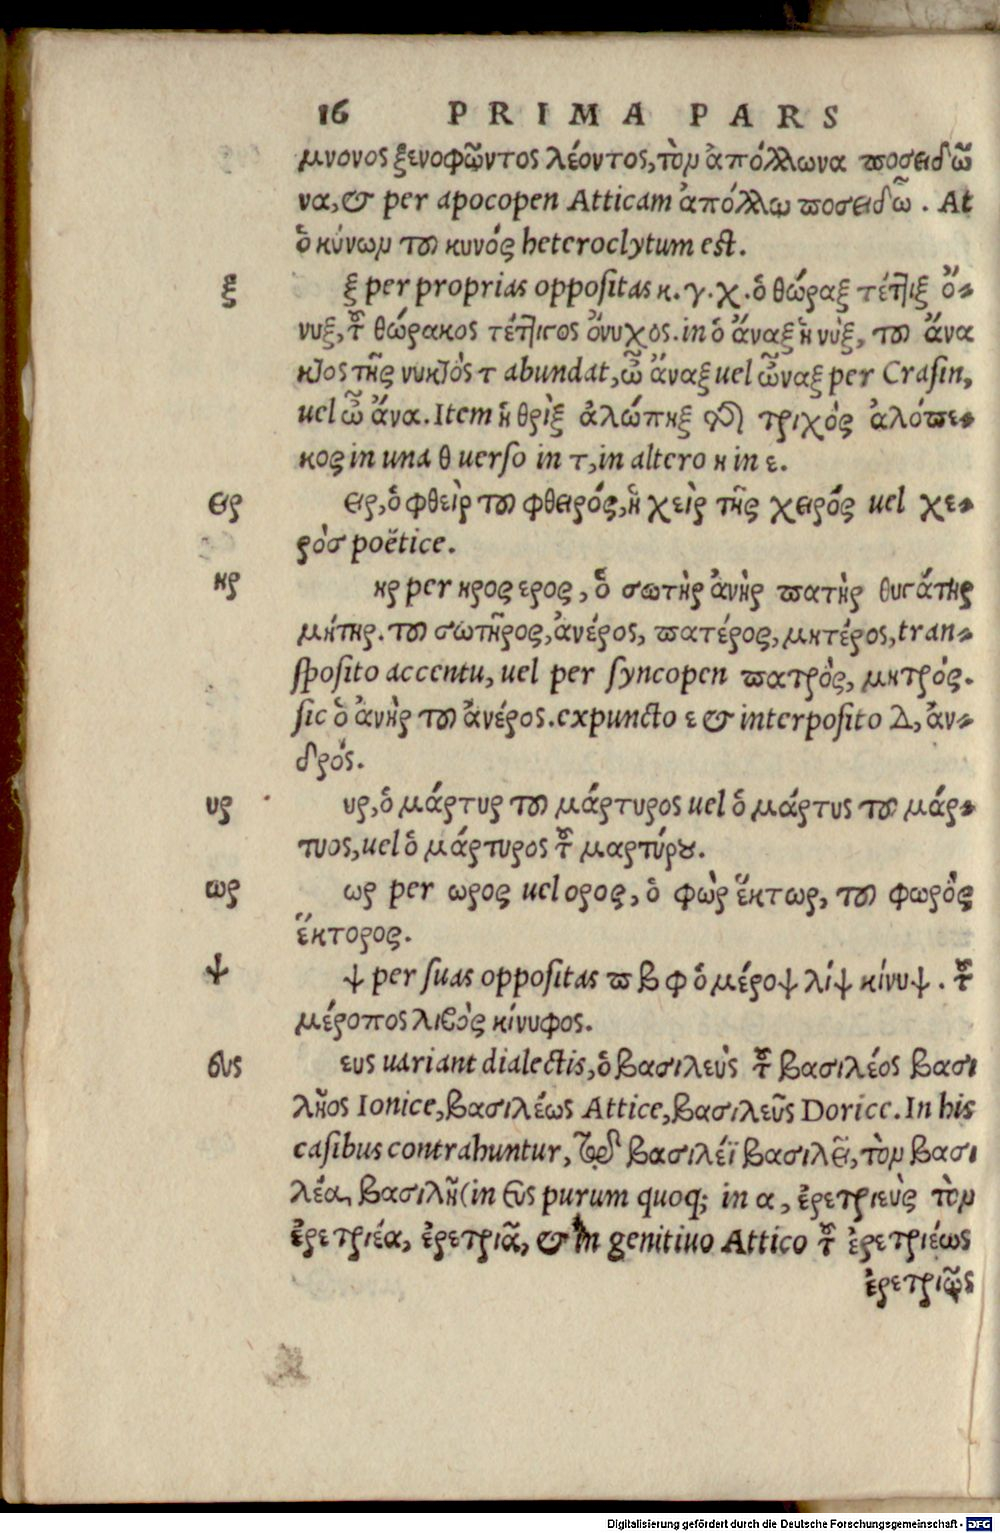 16 PRIMA PARS
μνονος ξενοφῶντος λέοντος, τὸν ἀπόλλωνα ποσειδῶ
να, & per apocopen Atticam ἀπόλλω ποσειδῶ. At
ὁ κύνων τοῦ κυνός heteroclytum est.
ξ
ξ per proprias oppositas κ. γ. χ. ὁ θώραξ τέττιξ ὄ-
νυξ, τοῦ θώρακος τέττιγος ὄνυχος. in ὁ ἄναξ ἡ νὺξ, τοῦ ἄνα
κτος τῆς νυκτὸς τ abundat, ὦ ἄναξ uel ὦναξ per Crasin,
uel ὦ ἄνα. Item ἡ θρὶξ ἀλώπηξ τριχὸς ἀλόπε-
κος in una θ uerso in τ, in altero η in ε.
ειρ
ειρ, ὁ φθεὶρ τοῦ φθειρός, ἡ χεὶρ τῆς χειρός uel χε-
ρὸσ poëtice.
ηρ
ηρ per ηρος ερος, ὁ σωτὴρ ἀνὴρ πατὴρ θυγάτηρ
μήτηρ. τοῦ σωτῆρος, ἀνέρος, πατέρος, μητέρος, tran-
sposito accentu, uel per syncopen πατρὸς, μητρός.
sic ὁ ἀνὴρ τοῦ ἀνέρος. expuncto ε & interposito Δ, ἀν-
δρός.
υρ
υρ, ὁ μάρτυρ τοῦ μάρτυρος uel ὁ μάρτυς τοῦ μάρ-
τυος, uel ὁ μάρτυρος τοῦ μαρτύρου.
ωρ
ωρ per ωρος uel ορος, ὁ φὼρ ἕκτωρ, τοῦ φωρὸς
ἕκτορος.
ψ
ψ per suas oppositas π β φ ὁ μέροψ λίψ κίνυψ. τοῦ
μέροπος λιβὸς κίνυφος.
ευς
ευς uariant dialectis, ὁ βασιλεὺς τοῦ βασιλέος βασι
λῆος Ionice, βασιλέως Attice, βασιλεῦς Dorice. In his
casibus contrahuntur, τῷ βασιλέϊ βασιλεῖ, τὸν βασι
λέα, βασιλῆ (in ευς purum quoq; in α, ἐρετριεὺς τὸν
ἐρετριέα, ἐρετριᾶ, & in genitiuo Attico τοῦ ἐρετριέως
ἐρετριῶς
Digitalisierung gefördert durch die Deutsche Forschungsgemeinschaft - DFG